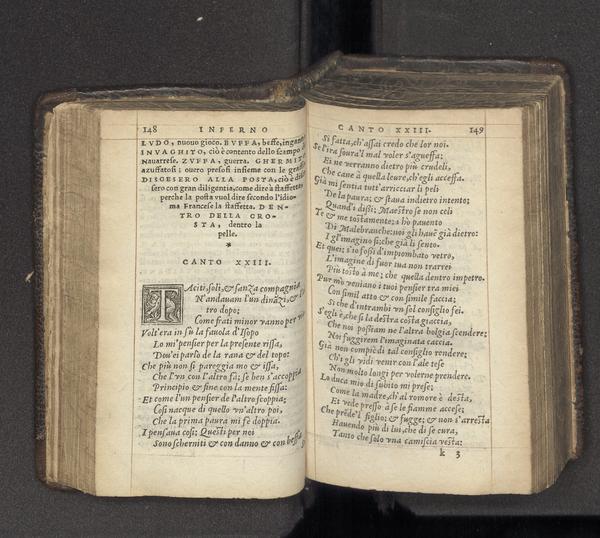 148 INFERNO
LVDO, nuouo gioco. BVFFA, beffe, inganno
INVAGHITO, ciò è contento dello scampo
Nauarrese. ZVFFA, guerra. GHERMITO
azuffatosi ouero presosi insieme con le
DISCESERO ALLA POSTA, ciò è
sero con gran diligentia, come dire à staffetta,
perche la posta vuol dire secondo l'idio-
ma Francese la staffetta. DEN-
TRO DELLA CRO-
STA, dentro la
pelle.
*
CANTO XXIII.
TAciti, soli, & sanza compagnia
N'andauam l'un dinãzi, & l'
tro dopo;
Come frati minor vanno per via
Volt'era in sù la fauola d'Isopo
Lo mi'pensier per la presente rissa,
Dou'ei parlò de la rana & del topo:
Che più non si pareggia mo & issa,
Che l'vn con l'altro fà; se ben s'accoppia
Principio & fine con la mente fissa:
Et come l'un pensier de l'altro scoppia;
Così nacque di quello vn'altro poi,
Che la prima paura mi fè doppia.
I pensaua così: Questi per noi
Sono scherniti & con danno & con beffa
CANTO XXIII. 149
Si fatta, ch'assai credo che lor noi.
Se l'ira soura'l mal voler s'agueffa;
Ei ne verranno dietro più crudeli,
Che cane à quella leure, ch'egli acceffa.
Già mi sentia tutt'arricciar li peli
De la paura; & staua indietro intento;
Quand'i dissi: Maestro se non celi
Te & me tostamente; i hò pauento
Di Malebranche: noi gli hauẽ già dietro:
I gl'imagino sì; che già li sento.
Et quei; s'io fossi d'impiombato vetro,
L'imagine di fuor tua non trarrei
Più tosto à me; che quella dentro impetro.
Pur mò veniano i tuoi pensier tra miei
Con simil atto & con simile faccia;
Si che d'intrambi vn sol consiglio fei.
S'egli è, che sì la destra costa giaccia,
Che noi possiam ne l'altra bolgia scendere;
Noi fuggirem l'imaginata caccia.
Già non compiè di tal consiglio rendere;
Ch'i gli vidi venir con l'ale tese
Non molto longi per volerne prendere.
Lo duca mio di subito mi prese;
Come la madre, ch'al romore è desta,
Et vede presso à se le fiamme accese;
Che prẽde'l figlio; & fugge; & non s'arresta
Hauendo più di lui, che di se cura,
Tanto che solo vna camiscia vesta:
k 3